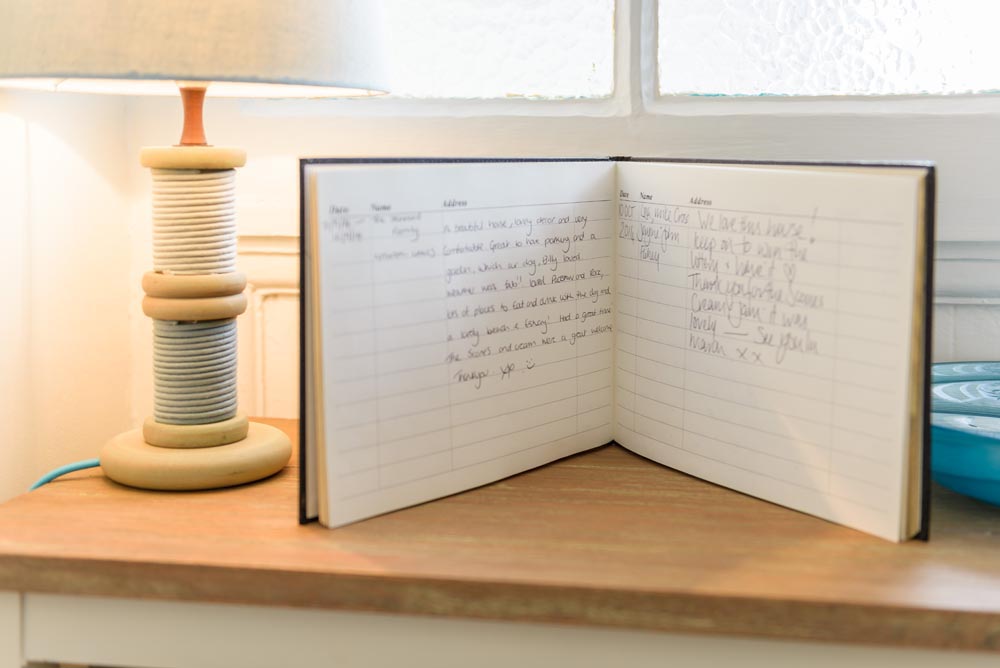 Date Name Address
The
Family
A beautiful home, lovely decor and very
comfortable. Great to have parking and a
garden, which our dog, Billy loved.
Weather was fab!! Loved Padstow and Rock,
lots of places to eat and drink with the dog and
a lovely beach & fishing! Had a great time
The scones and cream were a great welcome
Thankyou xxx
Date Name Address
10 Oct We love this house!
2016 Jayne Jam keep on to when the
Family lovely & have it
Thank you for the Scones
Cream & jam it was
lovely — See you in
March x x